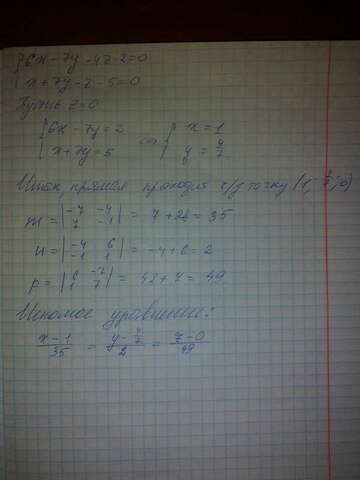 {6x - 7y - 4z - 2 = 0
{x + 7y - z - 5 = 0
Пусть z = 0
{6x - 7y = 2 <=> {x = 1
{x + 7y = 5 {y = 4/7
Итак, прямая проходит ч/з точку (1, 4/7, 0)
m = |-7 -4; 7 -1| = 7 + 28 = 35
n = |-4 6; -1 1| = -4 + 6 = 2
p = |6 -7; 1 7| = 42 + 7 = 49
Искомое уравнение:
(x - 1)/35 = (y - 4/7)/2 = (z - 0)/49